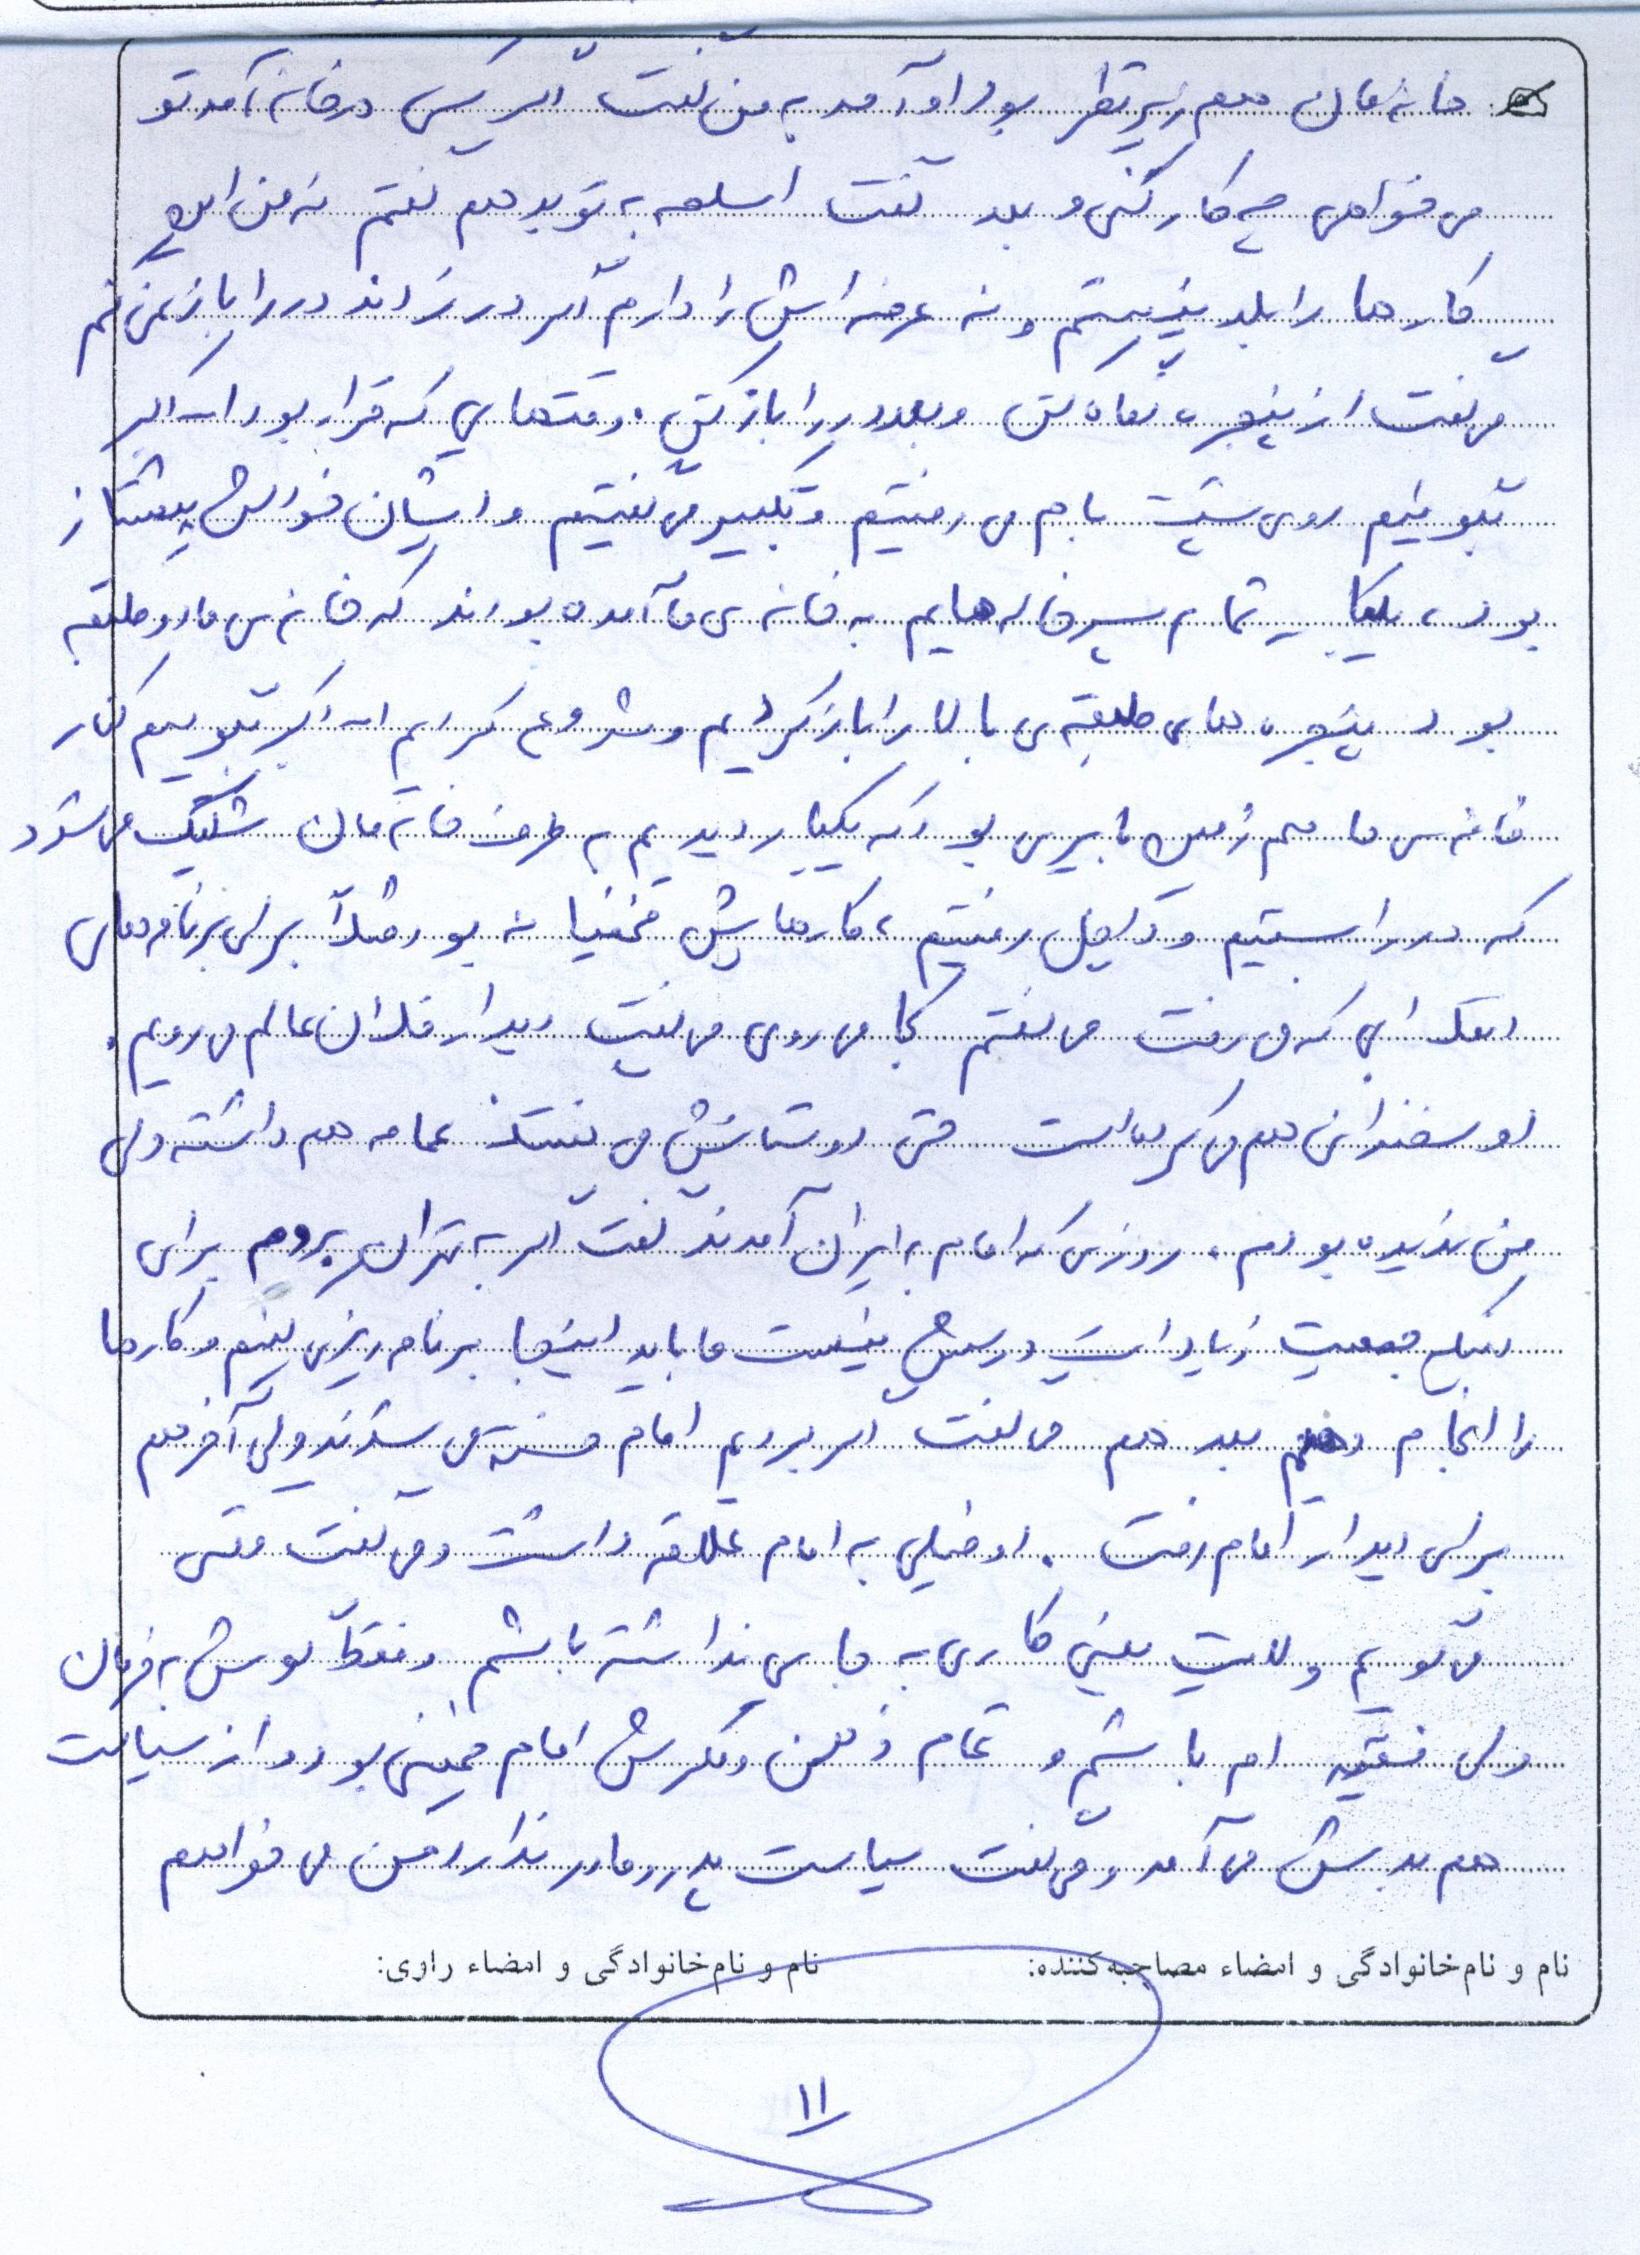 خانه‌مان هم زیر نظر بود او آمد به من گفت اگر کسی در خانه آمد تو
می‌خواهی چه کار کنی و بعد گفت اسلحه به تو بدهم گفتم نه من این
کارها را بلد نیستم و نه عرضه‌اش را دارم اگر در زدند در را باز نمی‌کنم
می‌گفت از پنجره نگاه کن و بعد در را باز کن. وقتهایی که قرار بود الله اکبر
بگوئیم روی پشت بام می‌رفتیم و تکبیر می‌گفتیم و ایشان خودش پیشتاز
بود، یکبار تمام پسرخاله‌هایم به خانه‌ی ما آمده بودند که خانه‌ی ما دو طبقه
بود پنجره‌های طبقه‌ی بالا را باز کردیم و شروع کردیم الله اکبر بگوییم کنار
خانه‌ی ما هم زمین بایری بود که یکبار دیدیم به طرف خانه‌مان شلیک می‌شود
که در را بستیم و داخل رفتیم، کارهایش مخفیانه بود مثلاً برای برنامه‌های
انقلابی که می‌رفت می‌گفتم کجا می‌روی می‌گفت دیدار فلان عالم می‌رویم.
او سخنرانی هم می‌کرده است حتی دوستانش می‌گفتند عمامه هم داشته ولی
من ندیده بودم. روزی که امام به ایران آمدند گفت اگر به تهران برویم برای
اینکه جمعیت زیاد است درست نیست ما باید اینجا برنامه‌ریزی کنیم و کارها
را انجام دهیم بعد هم می‌گفت اگر برویم امام خسته می‌شوند ولی آخر هم
برای دیدار امام رفت. او خیلی به امام علاقه داشت و می‌گفت وقتی
می‌گویم ولایت یعنی کاری به جایی نداشته باشم و فقط گوش به فرمان
ولی فقیه‌ام باشم و تمام ذهن و فکرش امام خمینی بود و از سیاست
هم بدش می‌آمد و می‌گفت سیاست پدر و مادر ندارد من می‌خواهم
نام و نام‌خانوادگی و امضاء مصاحبه‌کننده: نام و نام‌خانوادگی و امضاء راوی:
۱۱